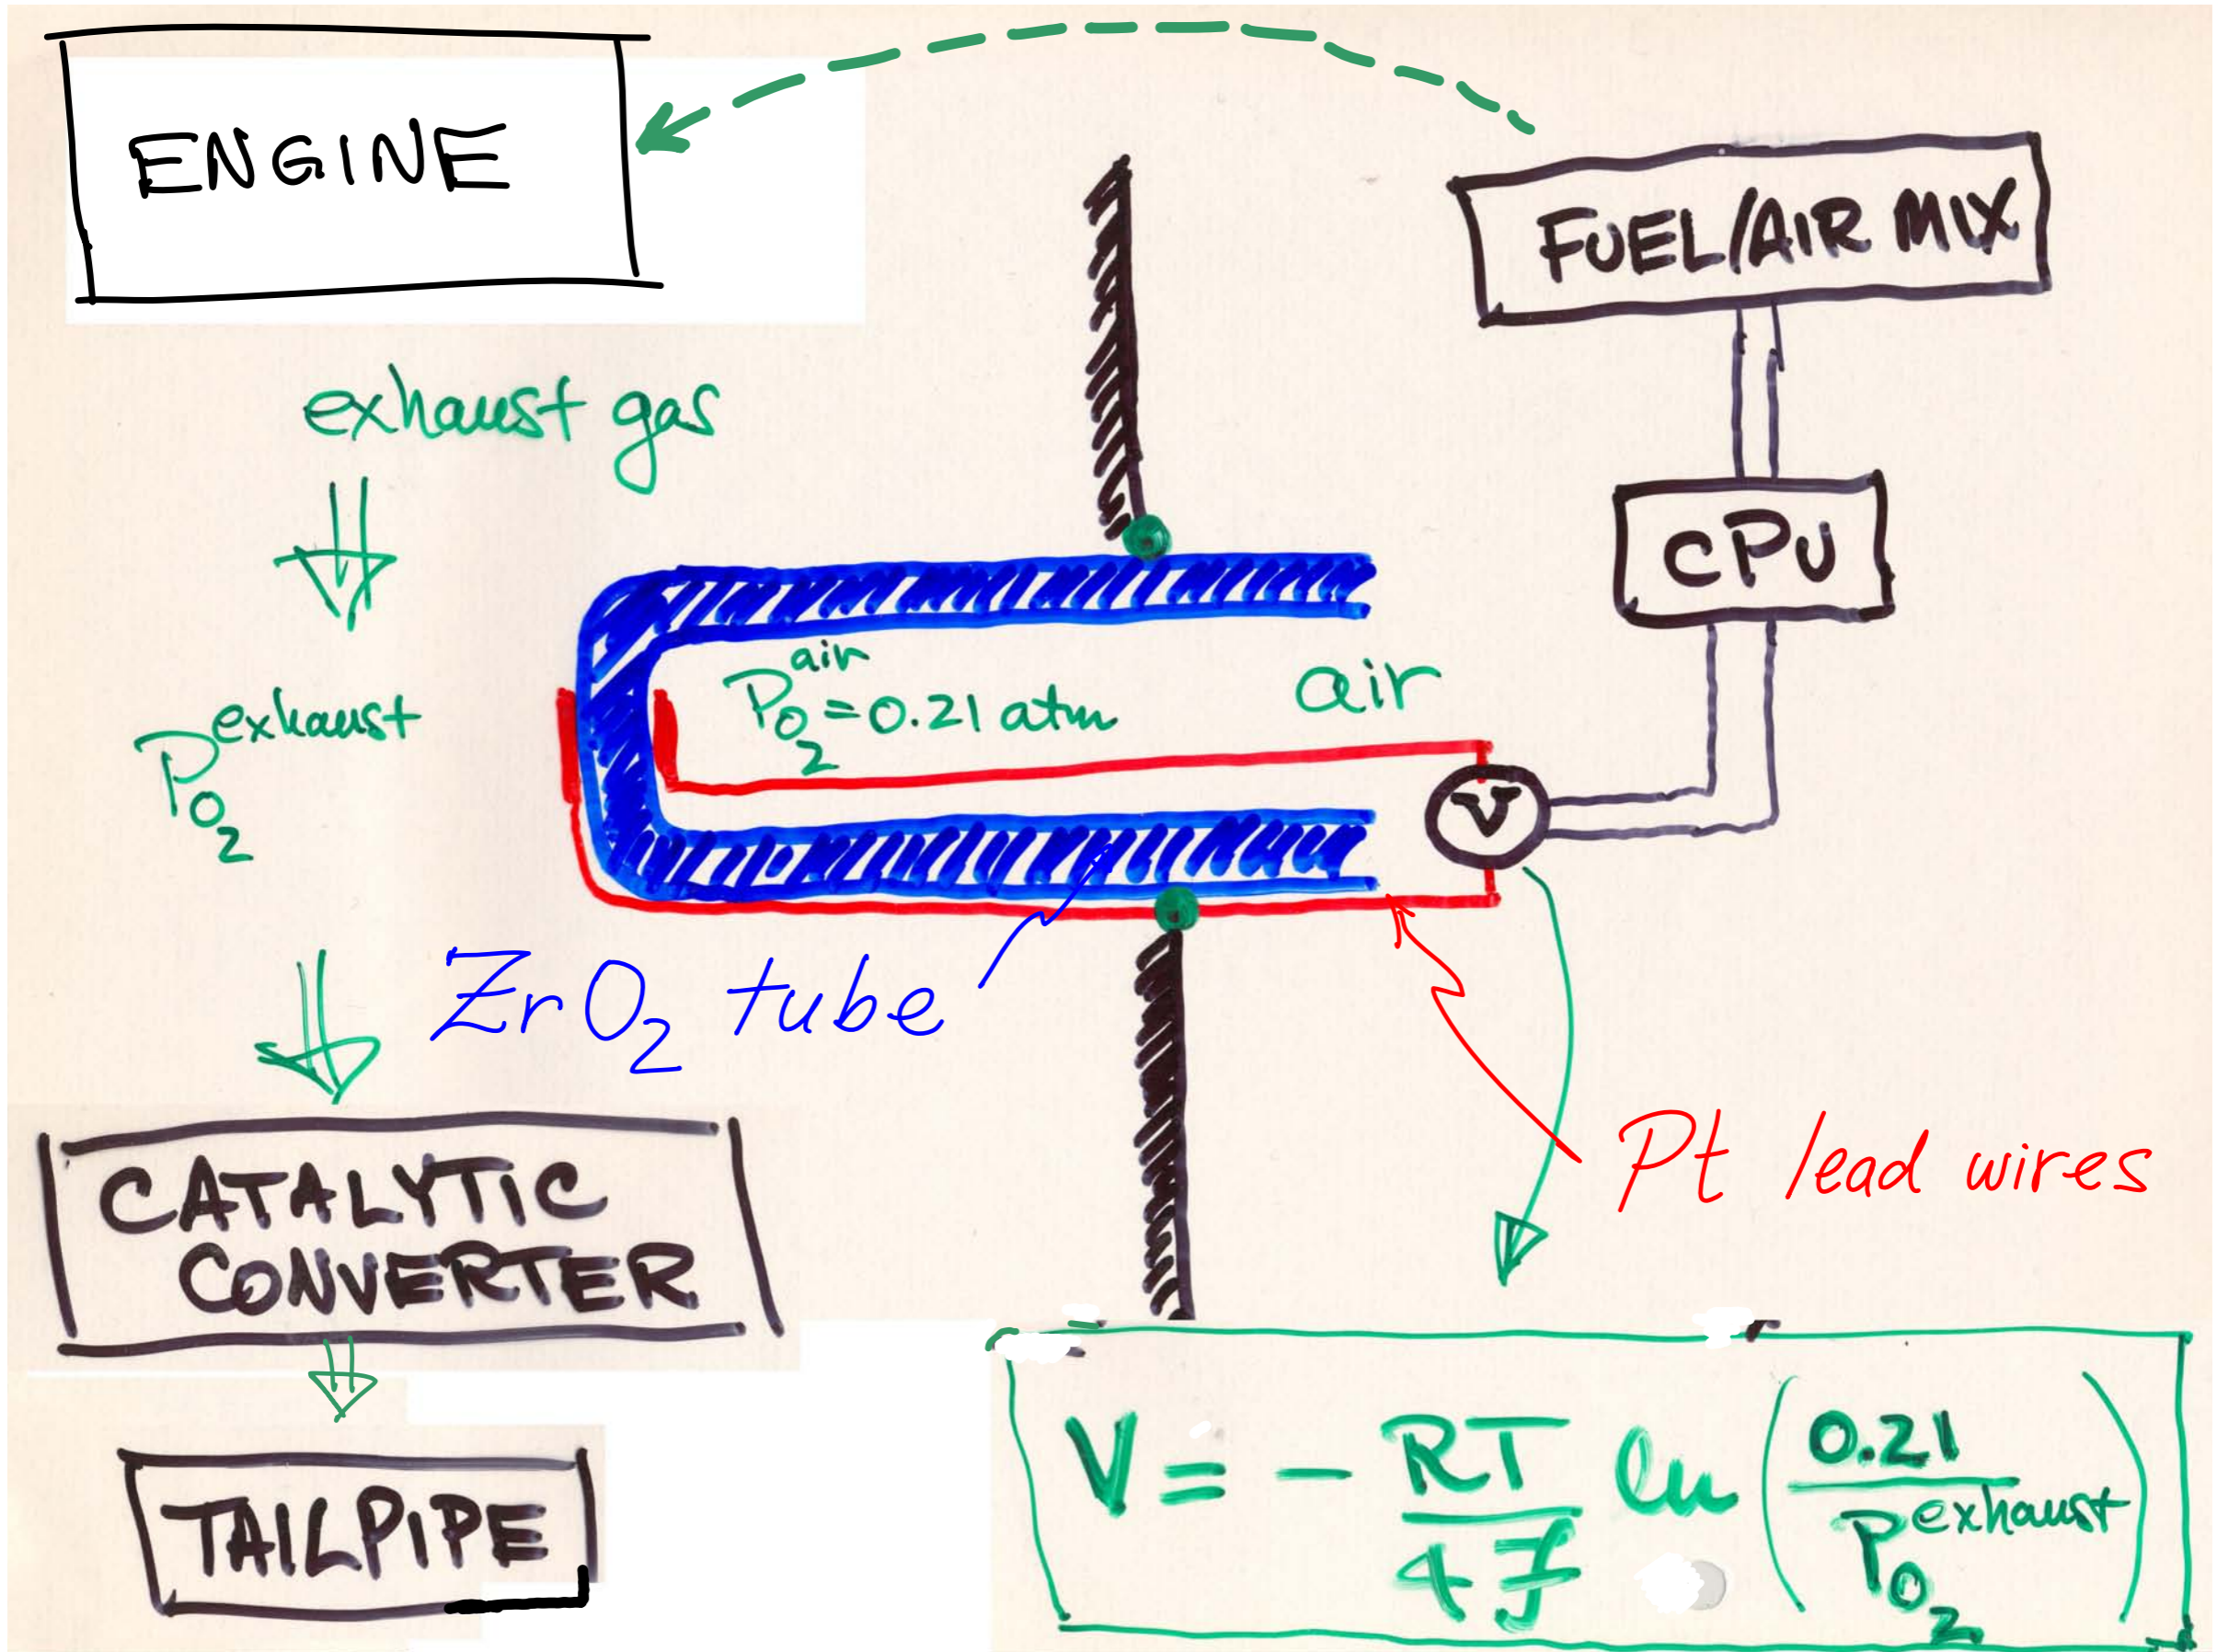 ENGINE
FUEL/AIR MIX
exhaust gas
CPU
P_O₂^exhaust
P_O₂^air = 0.21 atm
air
V
ZrO₂ tube
Pt lead wires
CATALYTIC
CONVERTER
TAILPIPE
V = - RT/4F ln (0.21/P_O₂^exhaust)